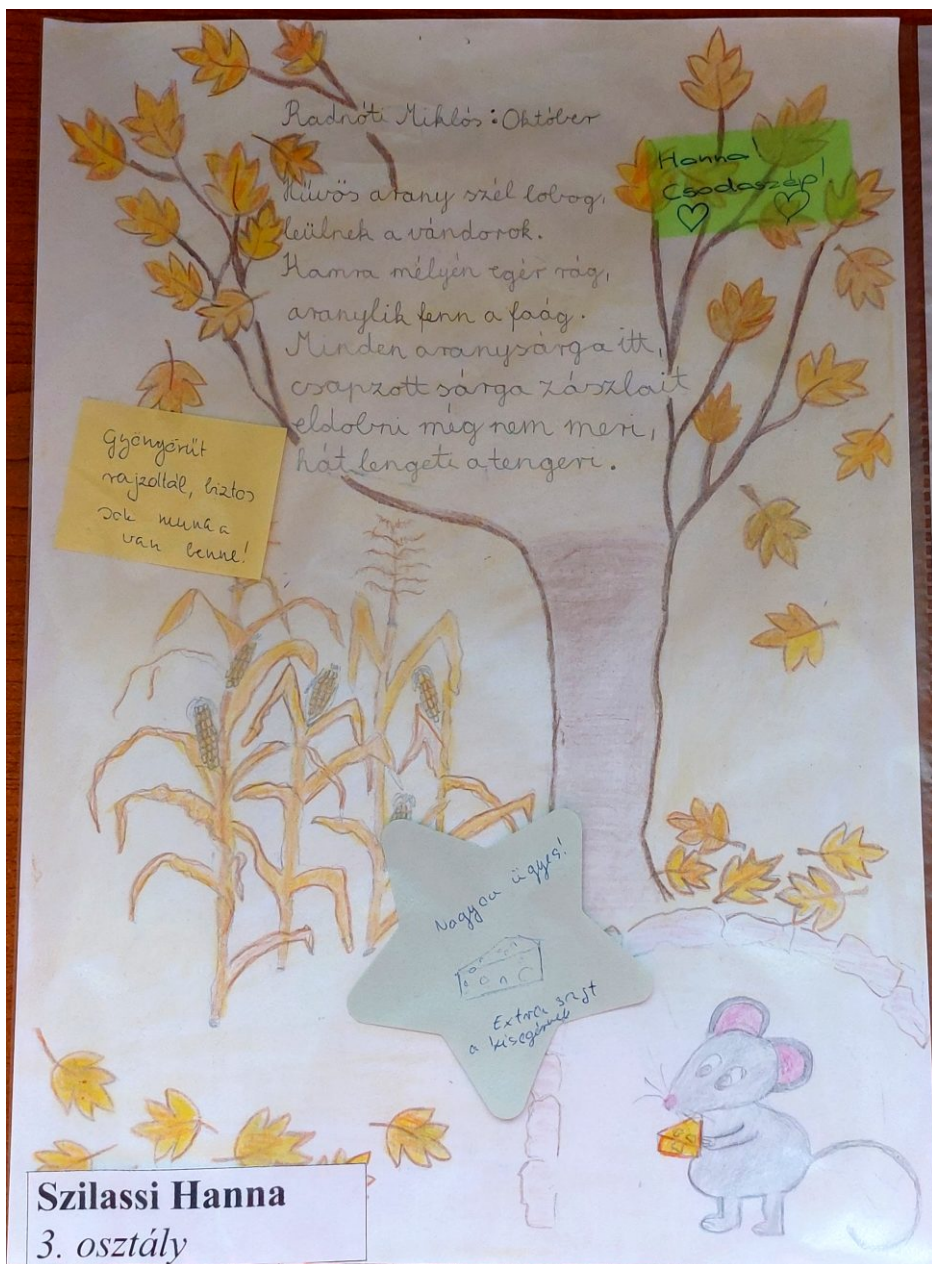 Radnóti Miklós: Október
Hűvös arany szél lobog,
leülnek a vándorok.
Kamra mélyén egér rág,
aranylik fenn a faág.
Minden aranysárga itt,
csapzott sárga zászlait
eldobni még nem meri,
hát lengeti a tengeri.
Hanna!
Csodaszép!
Gyönyörűt
rajzoltál, biztos
sok munka
van benne!
Nagyon ügyes!
Extra sajt
a kisegérnek
Szilassi Hanna
3. osztály